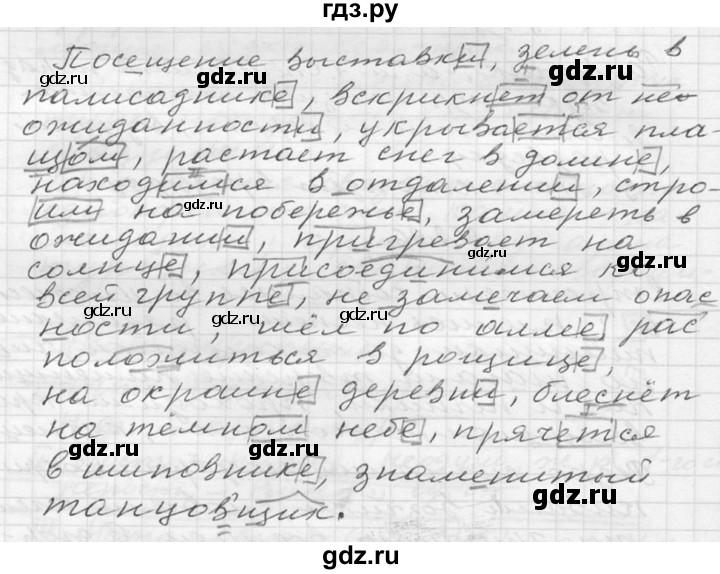 гдз.ру
Посещение выставки, зелень в
палисаднике, вскрикнет от не
ожиданности, укрывается пла
щом, растает снег в долине,
находимся в отдалении, стро-
или на побережье, замереть в
ожидании, пригревает на
солнце, присоединимся ко
всей группе, не замечаем опас
ности, шёл по аллее, рас
положиться в рощице,
на окраине деревни, блеснёт
на тёмном небе, прячется
в шиповнике, знаменитый
танцовщик.
gdz.ru